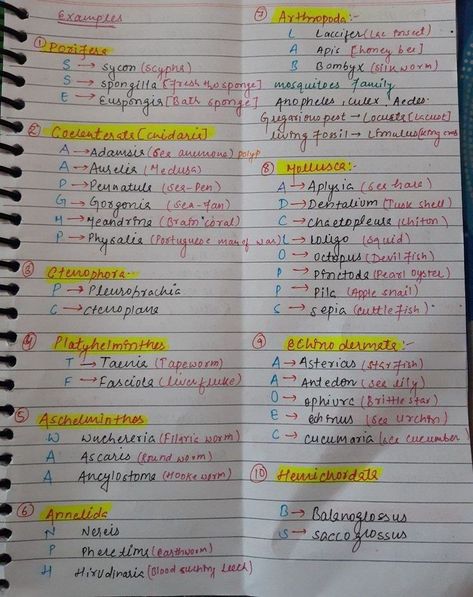 Examples
① Porifera
S → Sycon (Scypha)
S → Spongilla [Fresh H2O sponge]
E → Euspongia [Bath sponge]
② Coelenterata [Cnidaria]
A → Adamsia (Sea anemone) polyp
A → Aurelia (Medusa)
P → Pennatula (Sea-Pen)
G → Gorgonia (Sea-Fan)
M → Meandrina (Brain coral)
P → Physalia (Portuguese man of war)
③ Ctenophora
P → Pleurobrachia
C → Ctenoplana
④ Platyhelminthes
T → Taenia (Tapeworm)
F → Fasciola (Liver fluke)
⑤ Aschelminthes
W Wuchereria (Filaria worm)
A Ascaris (Round worm)
A Ancylostoma (Hookworm)
⑥ Annelida
N Nereis
P Pheretima (earthworm)
H Hirudinaria (Blood sucking leech)
⑦ Arthropoda:-
L Laccifer (Lac insect)
A Apis [honey bee]
B Bombyx (Silk worm)
mosquitoes family
Anopheles, Culex, Aedes.
Gregarious pest → Locusta (Locust)
living fossil → Limulus (King crab
⑧ Mollusca:-
A → Aplysia (Sea hare)
D → Dentalium (Tusk shell)
C → Chaetopleura (Chiton)
L → Loligo (Squid)
O → Octopus (Devil fish)
P → Pinctada (Pearl oyster)
P → Pila (Apple snail)
S → Sepia (Cuttlefish)
⑨ Echinodermata:-
A → Asterias (Star fish)
A → Antedon (Sea lily)
O → Ophiura (Brittle star)
E → Echinus (Sea Urchin)
C → Cucumaria (Sea cucumber)
⑩ Hemichordata
B → Balanoglossus
S → Saccoglossus